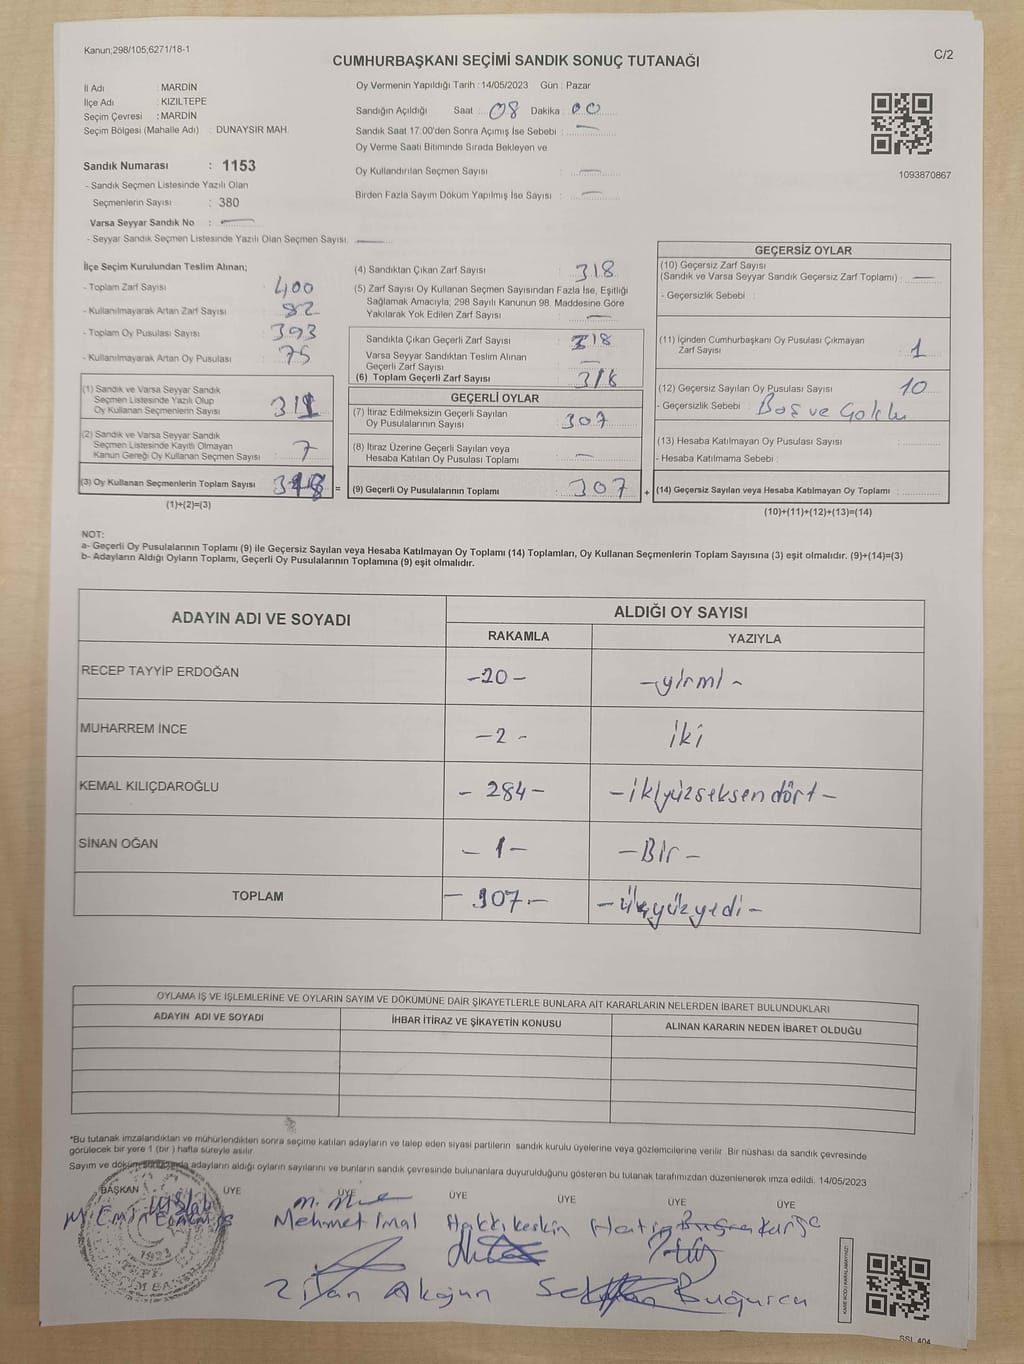 Kanun;298/105;6271/18-1
C/2
CUMHURBAŞKANI SEÇİMİ SANDIK SONUÇ TUTANAĞI
İl Adı : MARDİN
İlçe Adı : KIZILTEPE
Seçim Çevresi : MARDİN
Seçim Bölgesi (Mahalle Adı) : DUNAYSIR MAH.
Sandık Numarası : 1153
- Sandık Seçmen Listesinde Yazılı Olan
Seçmenlerin Sayısı : 380
Varsa Seyyar Sandık No :
- Seyyar Sandık Seçmen Listesinde Yazılı Olan Seçmen Sayısı:
Oy Vermenin Yapıldığı Tarih : 14/05/2023 Gün : Pazar
Sandığın Açıldığı Saat : 08 Dakika : 00
Sandık Saat 17.00'den Sonra Açımış İse Sebebi :
Oy Verme Saati Bitiminde Sırada Bekleyen ve
Oy Kullandırılan Seçmen Sayısı :
Birden Fazla Sayım Döküm Yapılmış İse Sayısı :
1093870867
İlçe Seçim Kurulundan Teslim Alınan;
- Toplam Zarf Sayısı : 400
- Kullanılmayarak Artan Zarf Sayısı : 82
- Toplam Oy Pusulası Sayısı : 393
- Kullanılmayarak Artan Oy Pusulası : 75
(1) Sandık ve Varsa Seyyar Sandık
Seçmen Listesinde Yazılı Olup
Oy Kullanan Seçmenlerin Sayısı : 311
(2) Sandık ve Varsa Seyyar Sandık
Seçmen Listesinde Kayıtlı Olmayan
Kanun Gereği Oy Kullanan Seçmen Sayısı : 7
(3) Oy Kullanan Seçmenlerin Toplam Sayısı : 318 =
(1)+(2)=(3)
(4) Sandıktan Çıkan Zarf Sayısı : 318
(5) Zarf Sayısı Oy Kullanan Seçmen Sayısından Fazla İse, Eşitliği
Sağlamak Amacıyla; 298 Sayılı Kanunun 98. Maddesine Göre
Yakılarak Yok Edilen Zarf Sayısı :
Sandıkta Çıkan Geçerli Zarf Sayısı : 318
Varsa Seyyar Sandıktan Teslim Alınan
Geçerli Zarf Sayısı :
(6) Toplam Geçerli Zarf Sayısı : 318
GEÇERLİ OYLAR
(7) İtiraz Edilmeksizin Geçerli Sayılan
Oy Pusulalarının Sayısı : 307
(8) İtiraz Üzerine Geçerli Sayılan veya
Hesaba Katılan Oy Pusulası Toplamı :
(9) Geçerli Oy Pusulalarının Toplamı : 307 +
GEÇERSİZ OYLAR
(10) Geçersiz Zarf Sayısı
(Sandık ve Varsa Seyyar Sandık Geçersiz Zarf Toplamı) :
- Geçersizlik Sebebi :
(11) İçinden Cumhurbaşkanı Oy Pusulası Çıkmayan
Zarf Sayısı : 1
(12) Geçersiz Sayılan Oy Pusulası Sayısı : 10
- Geçersizlik Sebebi : Boş ve Çoklu
(13) Hesaba Katılmayan Oy Pusulası Sayısı :
- Hesaba Katılmama Sebebi :
(14) Geçersiz Sayılan veya Hesaba Katılmayan Oy Toplamı :
(10)+(11)+(12)+(13)=(14)
NOT:
a- Geçerli Oy Pusulalarının Toplamı (9) ile Geçersiz Sayılan veya Hesaba Katılmayan Oy Toplamı (14) Toplamları, Oy Kullanan Seçmenlerin Toplam Sayısına (3) eşit olmalıdır. (9)+(14)=(3)
b- Adayların Aldığı Oyların Toplamı, Geçerli Oy Pusulalarının Toplamına (9) eşit olmalıdır.
ADAYIN ADI VE SOYADI ALDIĞI OY SAYISI
RAKAMLA YAZIYLA
RECEP TAYYİP ERDOĞAN -20- -yirmi-
MUHARREM İNCE -2- iki
KEMAL KILIÇDAROĞLU -284- -ikiyüzseksendört-
SİNAN OĞAN -1- -Bir-
TOPLAM -307- -üçyüzyedi-
OYLAMA İŞ VE İŞLEMLERİNE VE OYLARIN SAYIM VE DÖKÜMÜNE DAİR ŞİKAYETLERLE BUNLARA AİT KARARLARIN NELERDEN İBARET BULUNDUKLARI
ADAYIN ADI VE SOYADI İHBAR İTİRAZ VE ŞİKAYETİN KONUSU ALINAN KARARIN NEDEN İBARET OLDUĞU
*Bu tutanak imzalandıktan ve mühürlendikten sonra seçime katılan adayların ve talep eden siyasi partilerin sandık kurulu üyelerine veya gözlemcilerine verilir. Bir nüshası da sandık çevresinde
görülecek bir yere 1 (bir) hafta süreyle asılır.
Sayım ve döküm sonucunda adayların aldığı oyların sayılarını ve bunların sandık çevresinde bulunanlara duyurulduğunu gösteren bu tutanak tarafımızdan düzenlenerek imza edildi. 14/05/2023
BAŞKAN ÜYE ÜYE ÜYE ÜYE ÜYE ÜYE
Mehmet İnal Hakkı Keskin
Zilan Akoğun
KARE KODU KARALAMAYINIZ!
SSI 404